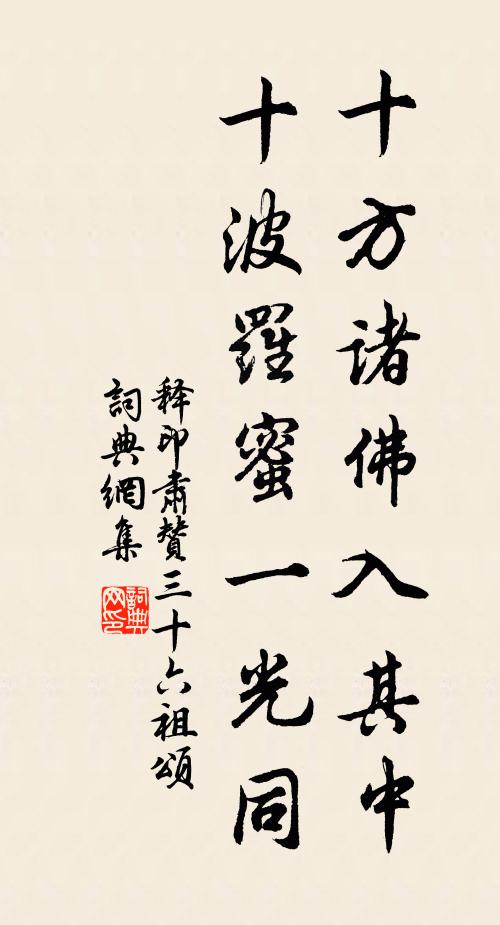 十方諸佛入其中
十波羅蜜一光同
释印肅贊三十六祖頌
詞典網集
詞典网印